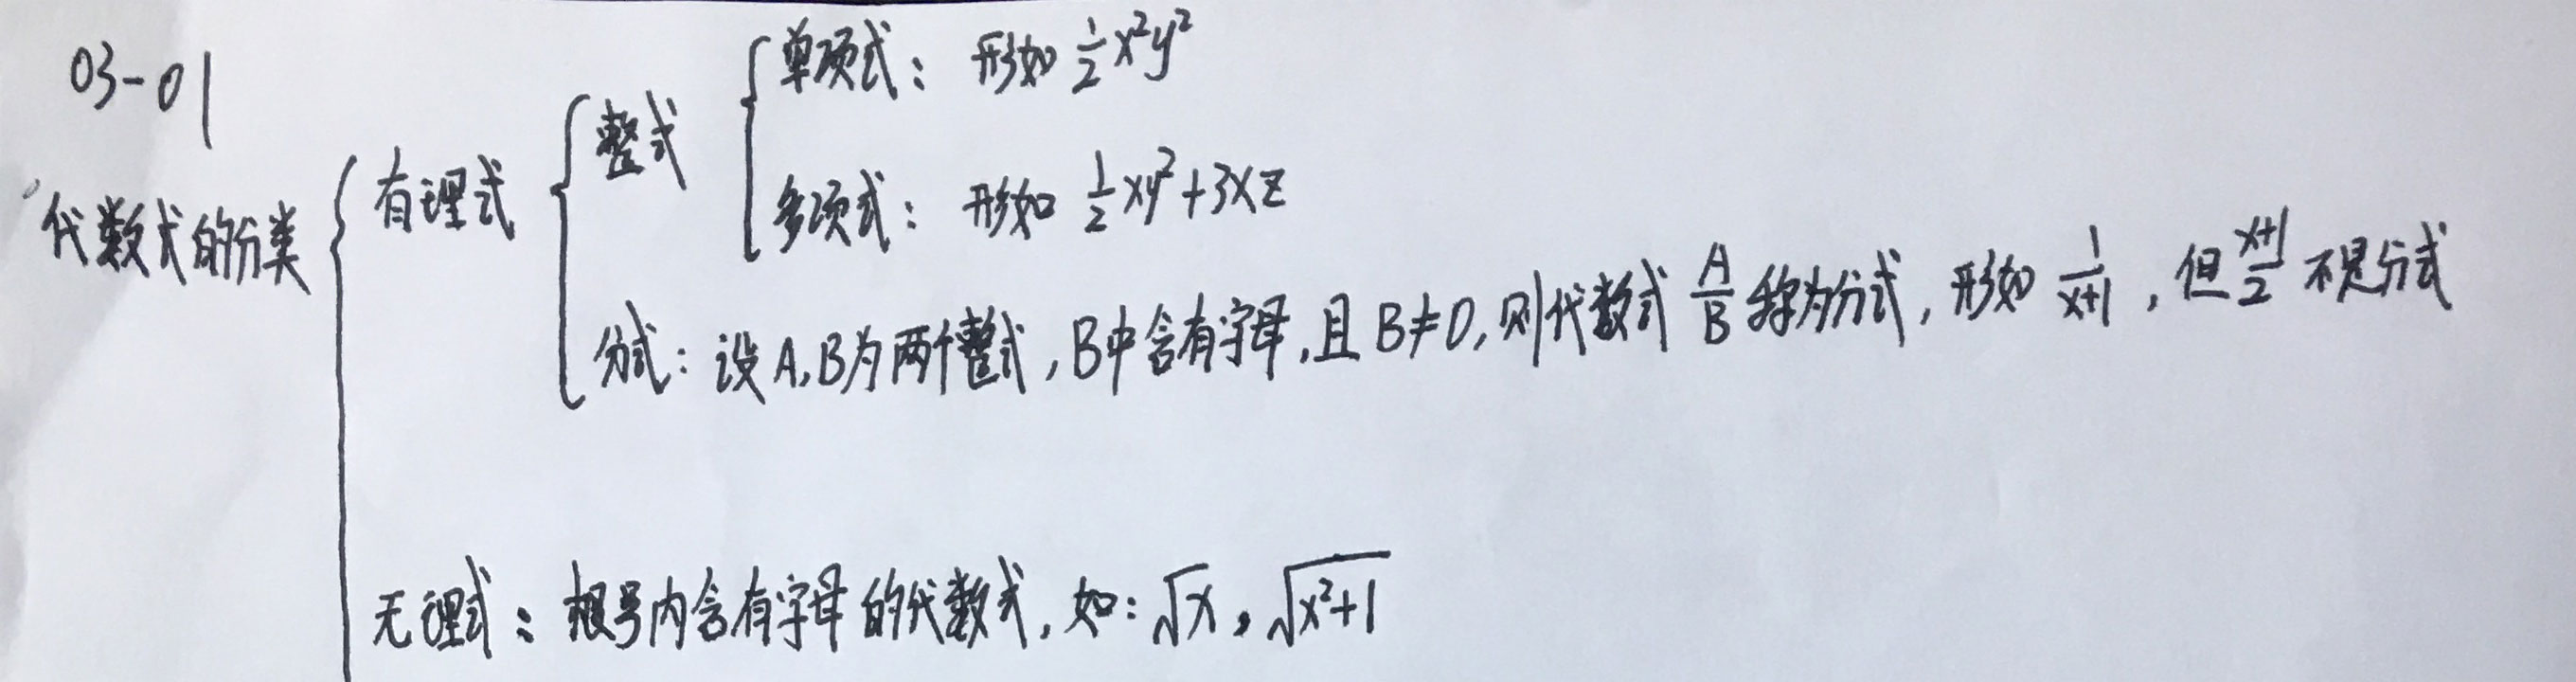 03-01
代数式的分类
有理式
整式
单项式：形如 $\frac{1}{2}x^2y^2$
多项式：形如 $\frac{1}{2}xy^2+3xz$
分式：设A,B为两个整式，B中含有字母，且B≠0，则代数式 $\frac{A}{B}$ 称为分式，形如 $\frac{1}{x+1}$，但 $\frac{x+1}{2}$ 不是分式
无理式：根号内含有字母的代数式，如：$\sqrt{x}$，$\sqrt{x^2+1}$